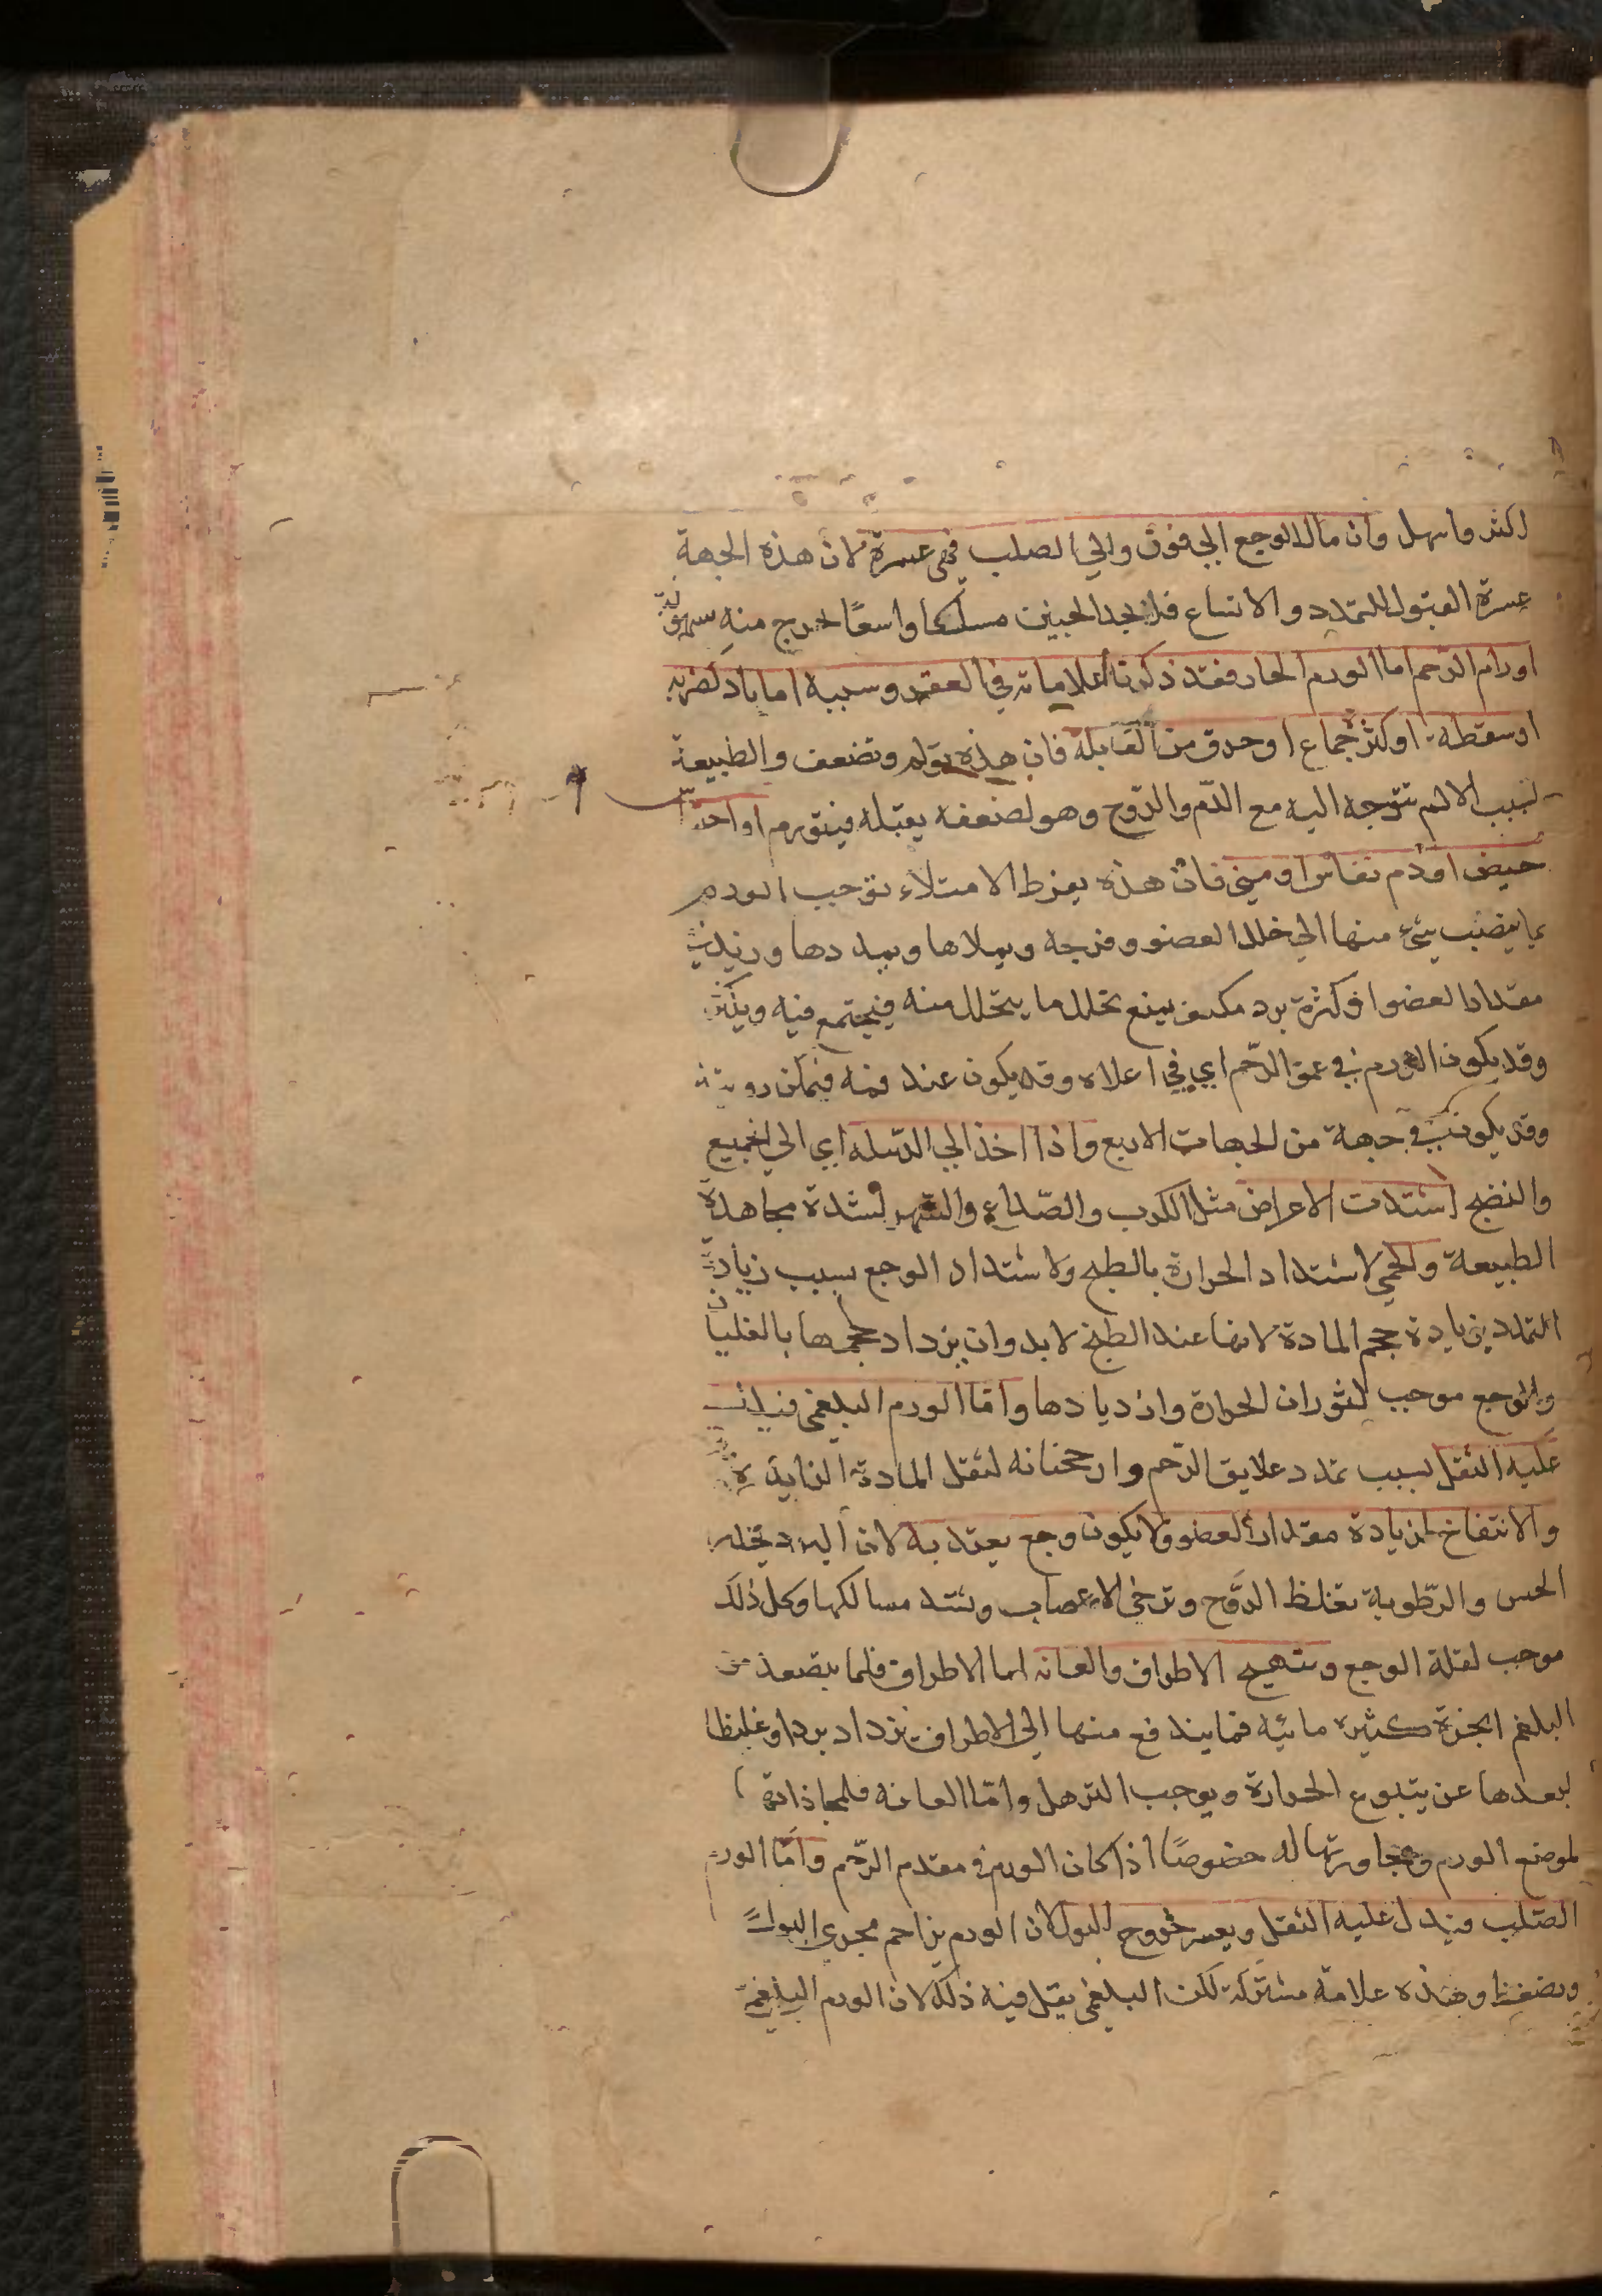 اكثر واسهل وان مال الوجع الي فوق والي الصلب فهي عسرة لان هذه الجهة
عسرة القبول للتمدد والاتساع فلا يجد الجنين مسلكا واسعًا لخرج منه بسهولة
اورام الرّحم اما الورم الحار فقد ذكرنا علاماته في العقر وسببه اما باد كضربه
اوسقطة او كثرة جماع او حرق من القابلة فان هذه تولم وتضعف والطبيعة
لسبب الالم تتوجه اليه مع الدّم والرّوح وهو لضعفه يقبله فيتورم او احتباس
حيض او دم نفاس او مني فان هذه بفرط الامتلاء توجب الورم
بما ينصب شيء منها الي خلل العضو وفرجه ويملاها ويمددها ويزيد في
مقدار العضو او كثرة برد مكثف يمنع تحلل ما يتحلل منه فيجتمع فيه ويكثر
وقد يكون الورم في عمق الرّحم اي في اعلاه وقد يكون عند فمه فيمكن رويته
وقد يكون في جهة من الجهات الاربع واذا اخذ الي الدّبيله اي الي التجميع
والنضج اشتدت الاعراض مثل الكرب والصّداع والسّهر لشدة مجاهدة
الطبيعة والحمي لاشتداد الحرارة بالطبخ ولاشتداد الوجع بسبب زيادة
التمدد بزيادة حجم المادة لانها عند الطبخ لا بد وان يزداد حجمها بالغليان
والوجع موجب لثوران الحرارة وازديادها وامّا الورم البلغمي فيدل
عليه الثقل بسبب تمدد علايق الرّحم وارجحنانه لثقل المادة الزايدة
والانتفاخ لزيادة مقدار العضو ولا يكون وجع يعتد به لان البرد يخدر
الحس والرّطوبة تغلظ الرّوح وترخي الاعصاب وتسد مسالكها وكل ذلك
موجب لقلة الوجع وتتهيج الاطراف والعانه اما الاطراف فلما يتصعد من
البلغم ابخرة كثيره مائيه فما يندفع منها الي الاطراف يزداد بردا وغلظا
لبعدها عن ينبوع الحرارة ويوجب الترهل وامّا العانه فلمحاذاتها
لموضع الورم ومجاورتها له خصوصًا اذا كان الورم في مقدم الرّحم وامّا الورم
الصّلب فيدل عليه الثقل ويعسر خروج البول لان الورم يزاحم مجري البول
ويضغط وهذه علامة مشتركة لكن البلغمي يقل فيه ذلك لان الورم البلغمي